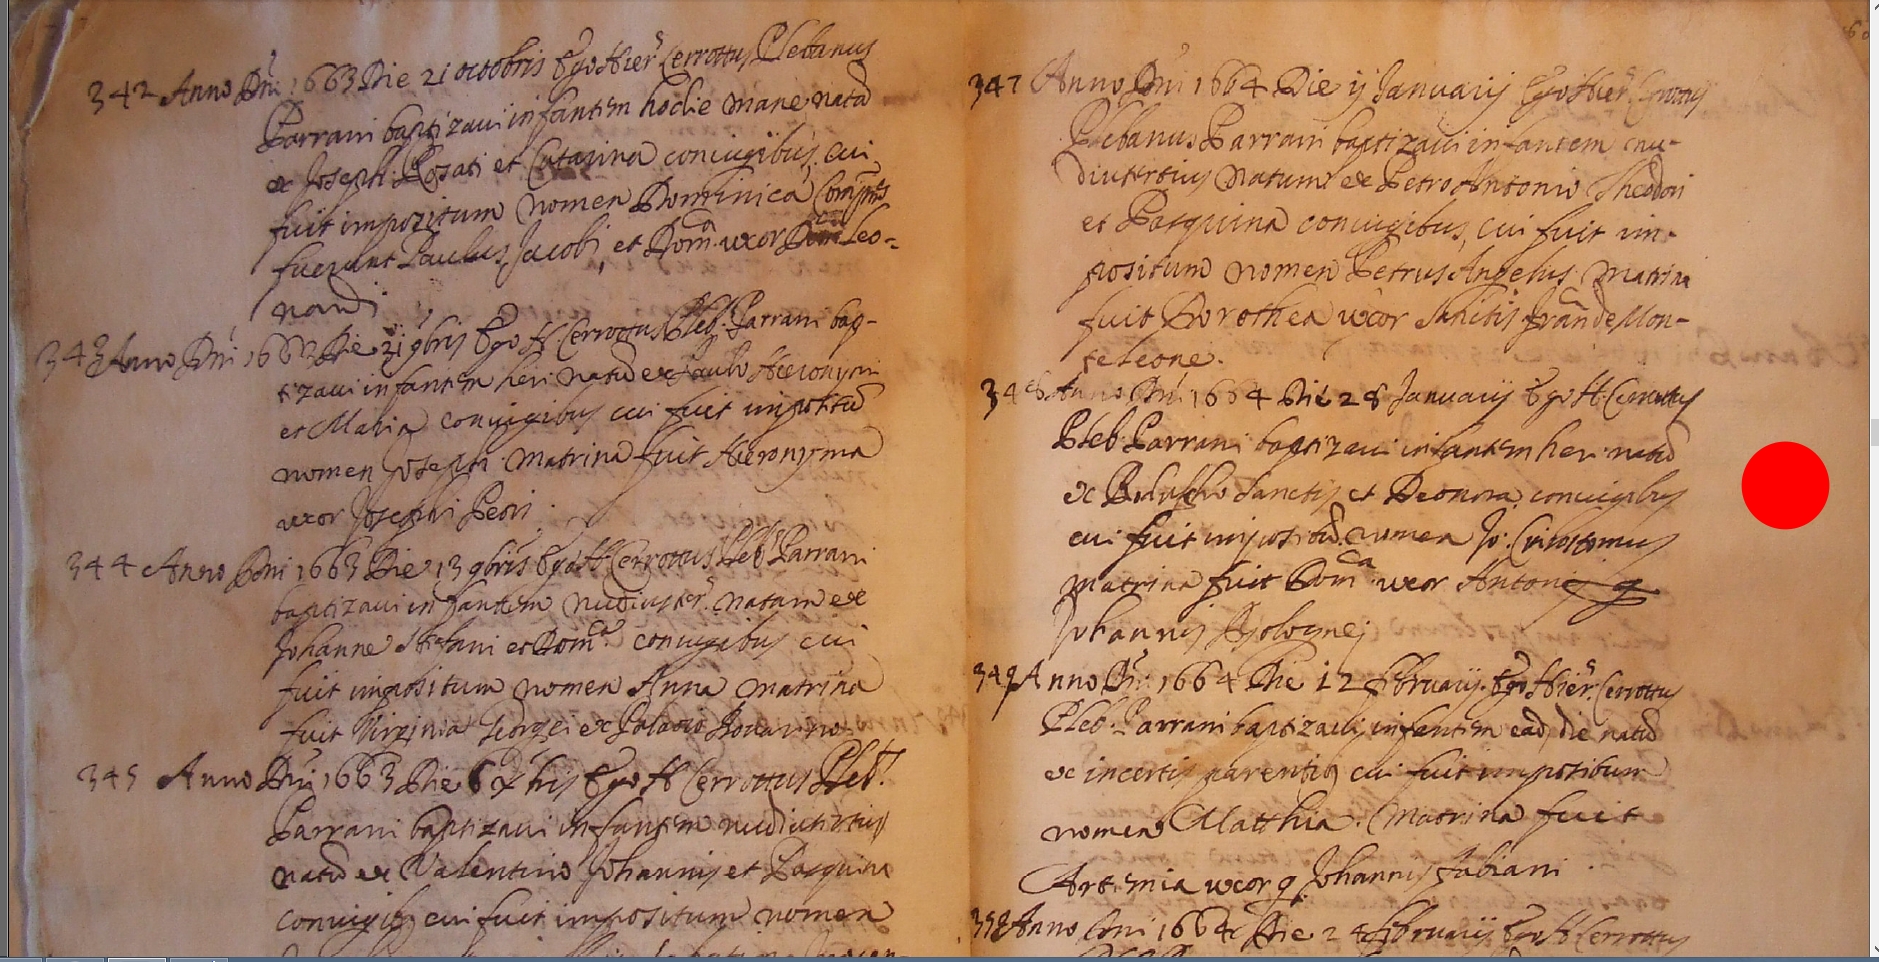 342 Anno Dni 1663 Die 21 octobris Ego Hier.s Cerrottus Plebanus
Parrani baptizaui infantem hodie mane natã
ex Joseph Rosati et Catarina coniugibus cui
fuit impositum nomen Dominica
fuerunt Paulus Jacobi, et Dom.ca uxor Leo-
nardi
343 Anno Dni 1663 Die 9bris Ego H. Cerrottus Pleb. Parrani bap-
tizaui infantem heri natũ ex Paulo Hieronymi
et Maria coniugibus cui fuit impositũ
nomen Joseph. Matrina fuit Hieronyma
uxor Josephi Peori.
344 Anno Dni 1663 Die 13 9bris Ego H Cerrottus Pleb.s Parrani
baptizaui infantem nudiuster.s natam ex
Johanne Stefani et Dom.ca coniugibus cui
fuit impositum nomen Anna matrina
fuit Virginia Georgei ex
345 Anno Dni 1663 Die 6 Xbris Ego H Cerrottus Pleb.s
Parrani baptizaui infantem nudiustertius
natũ ex Valentino Johannis et Pasquina
coniugib9 cui fuit impositum nomen
347 Anno Dni 1664 Die ij Januarij Ego Hier.s Cerrottus
Plebanus Parrani baptizaui infantem nu-
diustertius natum ex Petro Antonio Theodori
et Pasquina coniugibus, cui fuit im-
positum nomen Petrus Angelus. Matrina
fuit Dorothea uxor Sanctis de Mon-
teleone.
348 Anno Dni 1664 Die 28 Januarij Ego H. Cerrottus
Pleb. Parrani baptizaui infantem heri natũ
ex Sanctis et Deonora coniugibus
cui fuit impositũ nomen Jo: Crisostomus
matrina fuit Dom.ca uxor Antonij q
Johannis
349 Anno Dni 1664 Die 12 februarij. Ego Hier.s Cerrottus
Pleb. Parrani baptizaui infantem ead. die natũ
ex incertis parentib9 cui fuit impositum
nomen Matthia. Matrina fuit
Artemia uxor q. Johannis Fabiani
350 Anno Dni 1664 Die 24 februarij Ego H Cerrottus